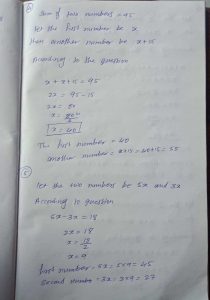 ② Sum of two numbers = 95
let the first number be x
then another number be x+15
According to the question
x + x + 15 = 95
2x = 95 - 15
2x = 80
x = 80/2
x = 40
The first number = 40
another number = x+15 = 40+15 = 55
let the two numbers be 5x and 3x
According to question
5x - 3x = 18
2x = 18
x = 18/2
x = 9
first number = 5x = 5×9 = 45
second number = 3x = 3×9 = 27